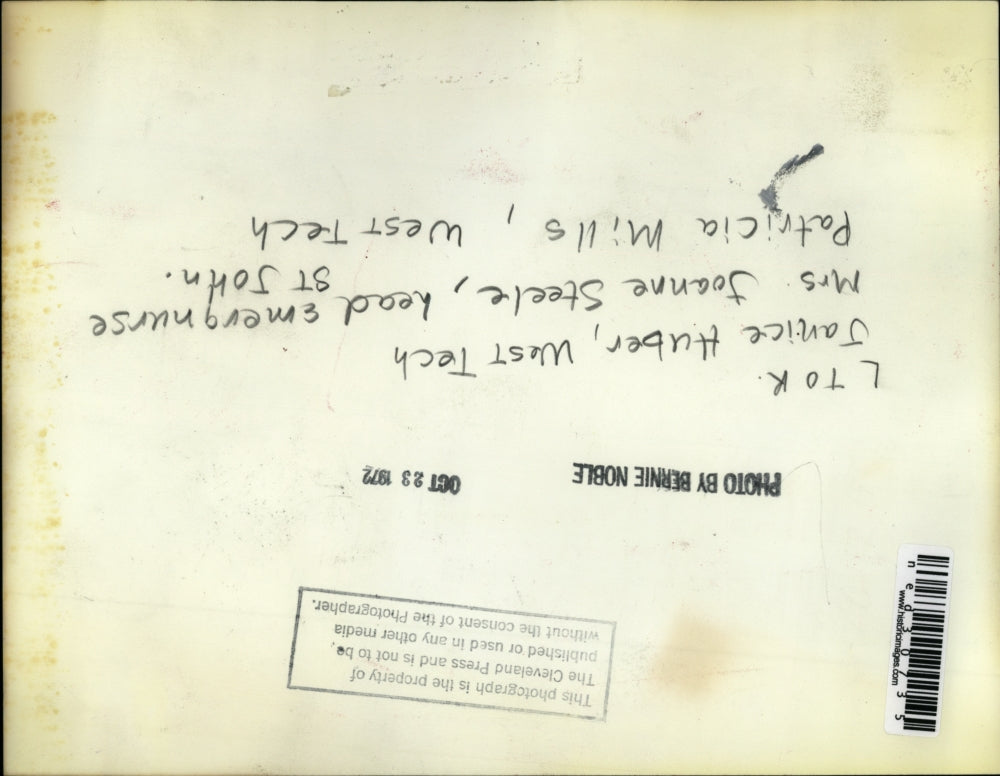 This photograph is the property of
The Cleveland Press and is not to be
published or used in any other media
without the consent of the Photographer.
PHOTO BY BERNIE NOBLE
OCT 23 1972
L TO R.
Janice Huber, West Tech
Mrs. Joanne Steele, head Emerg nurse
ST JOHN.
Patricia Mills, West Tech
ned30735
www.historicimages.com